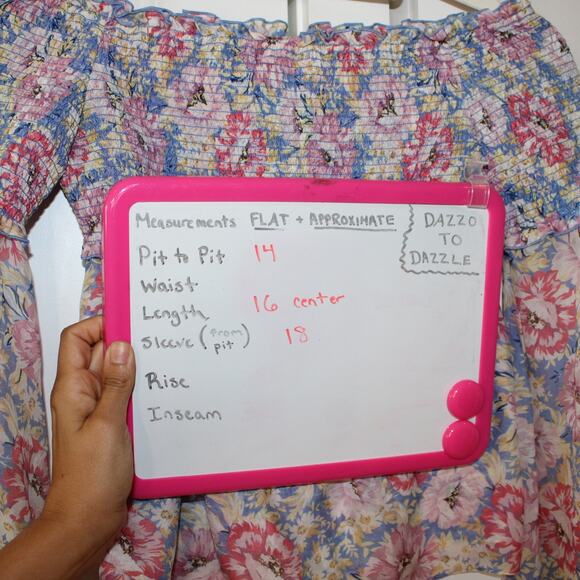 Measurements FLAT + APPROXIMATE
DAZZO
TO
DAZZLE
Pit to Pit 14
Waist
Length 16 center
Sleeve (from pit) 18
Rise
Inseam